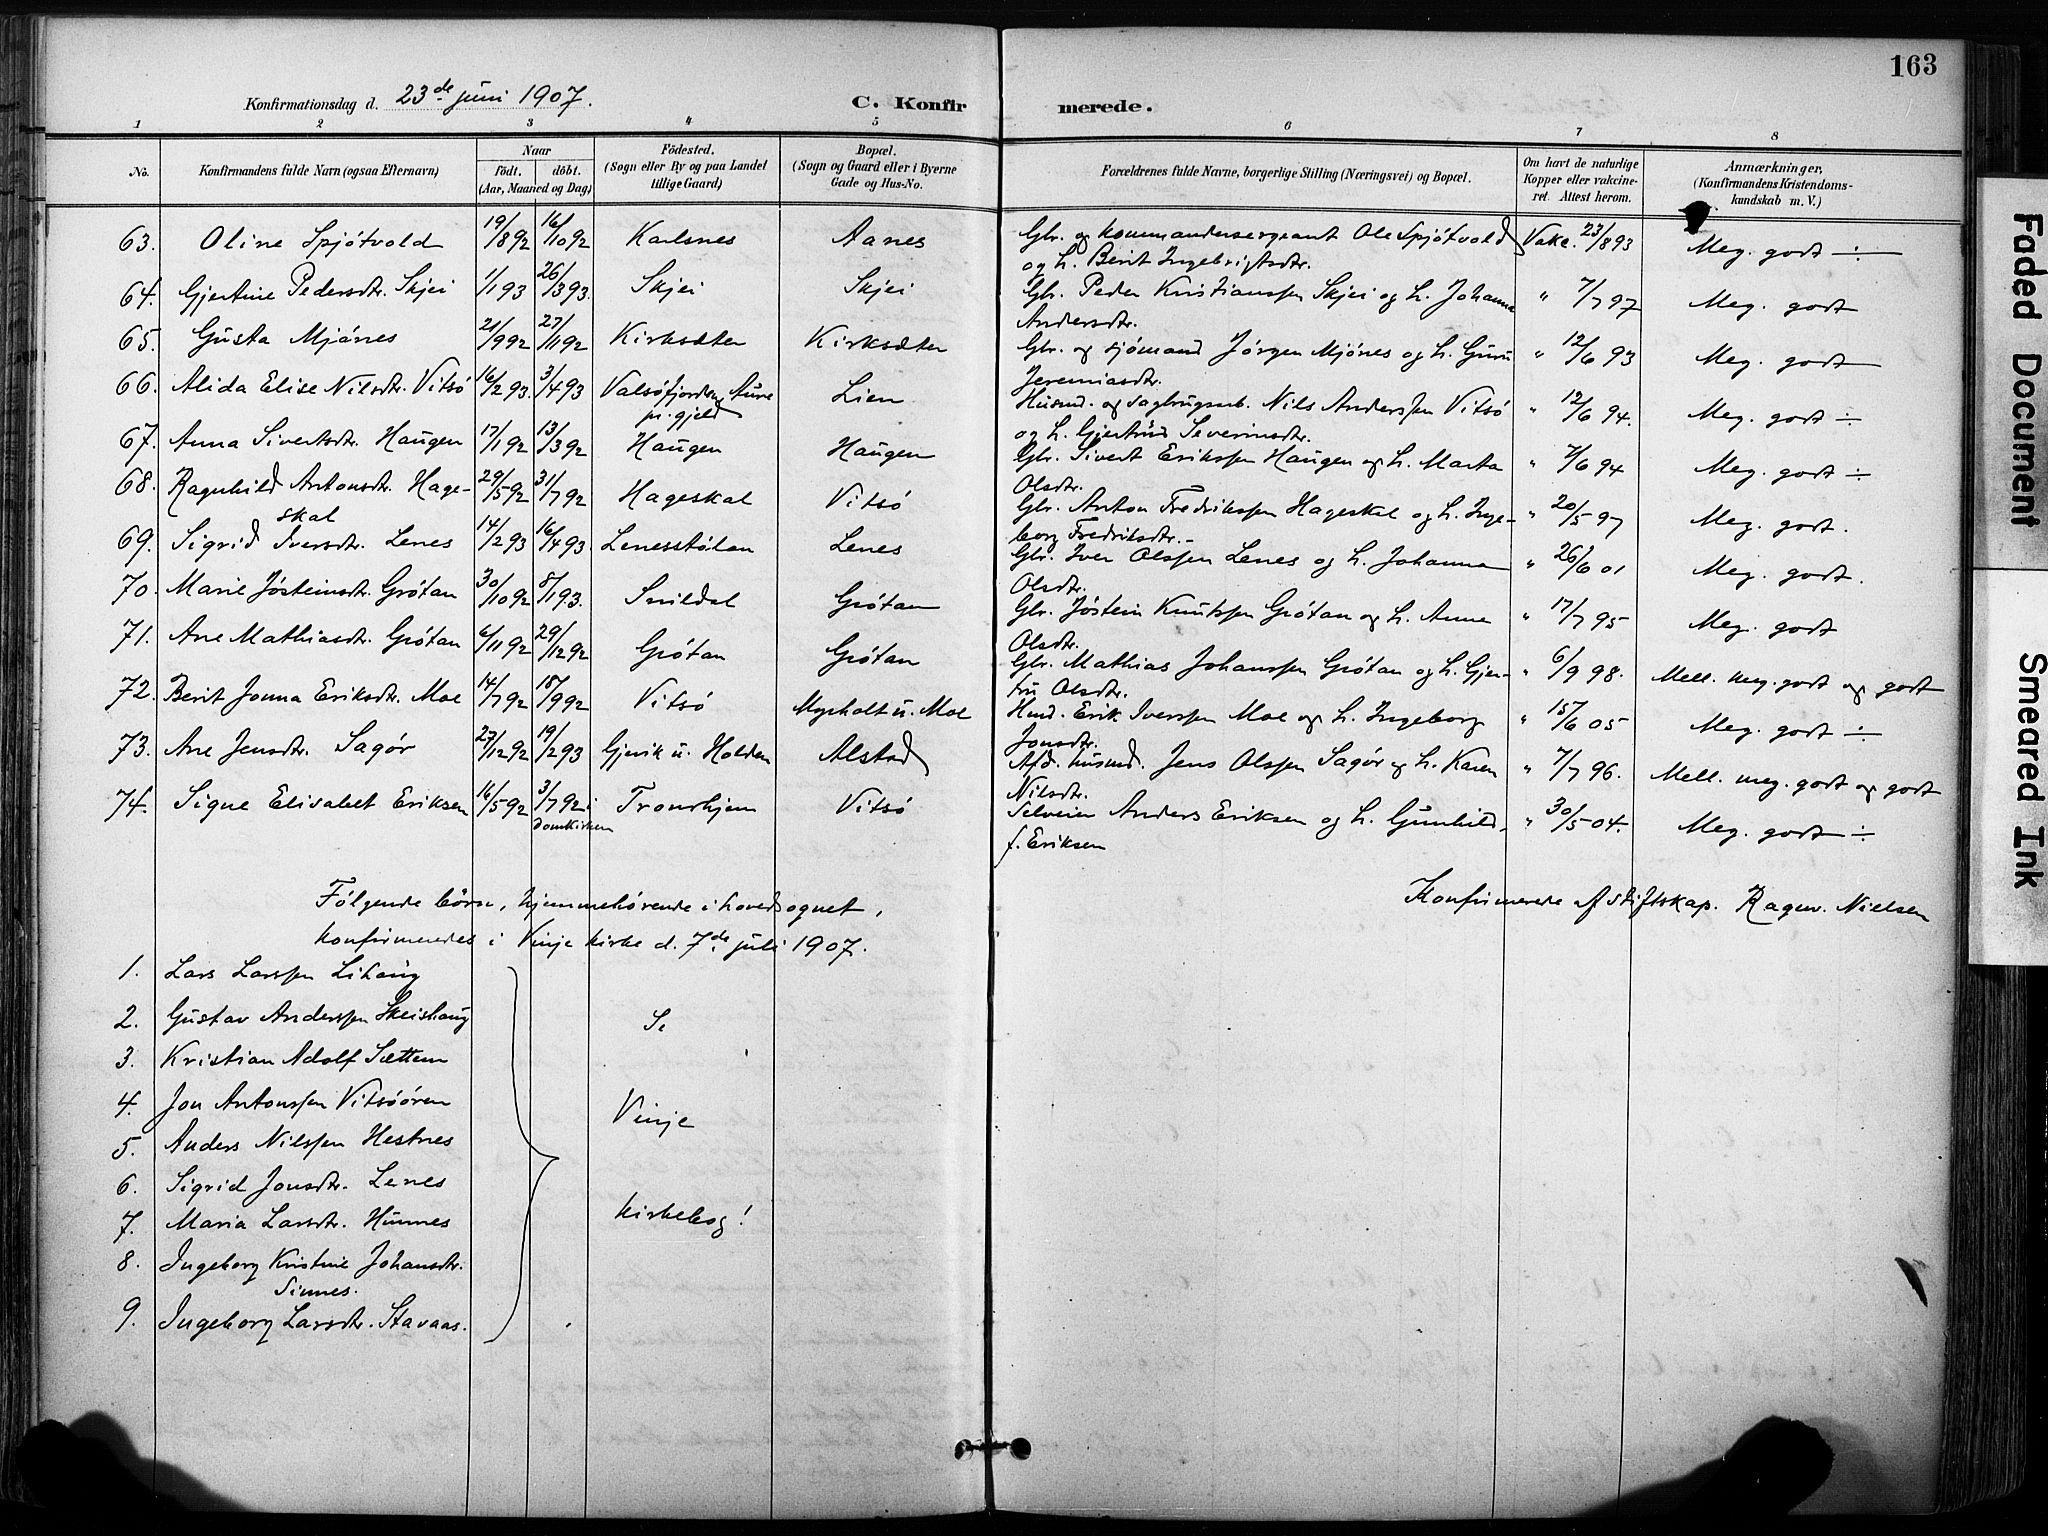 163
Konfirmationsdag d. 23de juni 1907.
C. Konfirmerede.
1 2 3 4 5 6 7 8
No. Konfirmandens fulde Navn (ogsaa Efternavn) Naar födt. döbt. (Aar, Maaned og Dag) Födested. (Sogn eller By og paa Landet tillige Gaard) Bopæl. (Sogn og Gaard eller i Byerne Gade og Hus-No. Forældrenes fulde Navne, borgerlige Stilling (Næringsvei) og Bopæl. Om havt de naturlige Kopper eller vakcineret. Attest herom. Anmærkninger, (Konfirmandens Kristendomskundskab m. V.)
63. Oline Spjötvold 19/8 92 16/10 92 Karlsnes Aanes Gbr. og kommandersergeant Ole Spjötvold Vakc. 23/8 93 Meg. godt ÷
og h. Berit Ingebrigtsdtr.
64. Gjertine Pedersdtr. Skjei 1/1 93 26/3 93. Skjei Skjei Gbr. Peder Kristianssen Skjei og h. Johanna " 7/7 97 Meg. godt
Andersdtr.
65. Gusta Mjönes 21/9 92 27/11 92 Kirksæter Kirksæter Gbr. og sjömand Jörgen Mjönes og h. Guru " 12/6 93 Meg. godt
Jeremiasdtr.
66. Alida Elise Nilsdtr. Vitsö 16/2 93. 3/4 93 Valsöfjorden, Aure pr.gjeld Lien Husmd. og sagbrugsarb. Nils Anderssen Vitsö " 12/6 94. Meg. godt ÷
og h. Gjertrud Severinsdtr.
67. Anna Sivertsdtr. Haugen 17/1 92 13/3 92 Haugen Haugen Gbr. Sivert Erikssen Haugen og h. Marta " 7/6 94 Meg. godt ÷
Olsdtr.
68. Ragnhild Antonsdtr. Hage- 29/5 92 31/7 92 Hageskal Vitsö Gbr. Anton Fredrikssen Hageskal og h. Inge- " 20/5 97 Meg. godt.
skal borg Fredriksdtr.
69. Sigrid Iversdtr. Lenes 14/2 93 16/4 93. Lenesstölan Lenes Gbr. Iver Olssen Lenes og h. Johanna " 26/6 01 Meg. godt.
Olsdtr.
70. Marie Jösteinsdtr. Grötan 30/10 92 8/1 93. Snildal Grötan Gbr. Jöstein Knutssen Grötan og h. Anne " 17/7 95 Meg. godt
Olsdtr.
71. Ane Mathiasdtr. Grötan 6/11 92 29/12 92 Grötan Grötan Gbr. Mathias Johanssen Grötan og h. Gjer- " 6/9 98. Mell. meg. godt og godt
tru Olsdtr.
72. Berit Jonna Eriksdtr. Moe 14/7 92 18/9 92 Vitsö Myrholt u. Moe Husmd. Erik Iverssen Moe og h. Ingeborg " 15/6 05 Meg. godt ÷
Jonsdtr.
73. Ane Jensdtr. Sagör 27/12 92 19/2 93 Gjevik u. Holden Alstad Afd. husmd. Jens Olssen Sagör og h. Karen " 7/7 96. Mell. meg. godt og godt
Nilsdtr.
74. Signe Elisabet Eriksen 16/5 92 3/7 92 i Domkirken Trondhjem Vitsö Selveier Anders Eriksen og h. Gunhild " 30/5 04. Meg. godt ÷
f. Eriksen
Konfirmerede af stiftskap. Ragnv. Nielsen
Følgende börn, hjemmehörende i hovedsognet,
konfirmeredes i Vinje kirke d. 7de juli 1907.
1. Lars Larssen Lihaug
2. Gustav Anderssen Skeishaug Se
3. Kristian Adolf Sættem
4. Jon Antonssen Vitsöören Vinje
5. Anders Nilssen Hestnes
6. Sigrid Jonsdtr. Lenes
7. Maria Larsdtr. Hunnes kirkebog!
8. Ingeborg Kristine Johansdtr.
Sinnes.
9. Ingeborg Larsdtr. Stavaas.
Faded Document
Smeared Ink